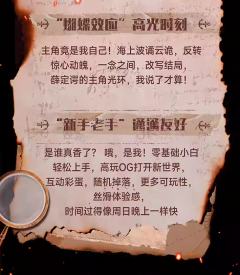 “蝴蝶效应”高光时刻
主角竟是我自己！海上波谲云诡，反转
惊心动魄，一念之间，改写结局，
薛定谔的主角光环，我说了才算！
“新手老手”通通友好
是谁真香了？ 哦，是我！零基础小白
轻松上手，高玩OG打开新世界，
互动彩蛋，随机掉落，更多可玩性，
丝滑体验感，
时间过得像周日晚上一样快